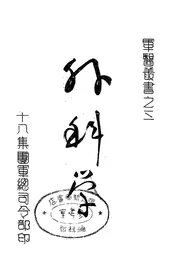 軍醫叢書之三
外科学
十八集團軍總司令部印